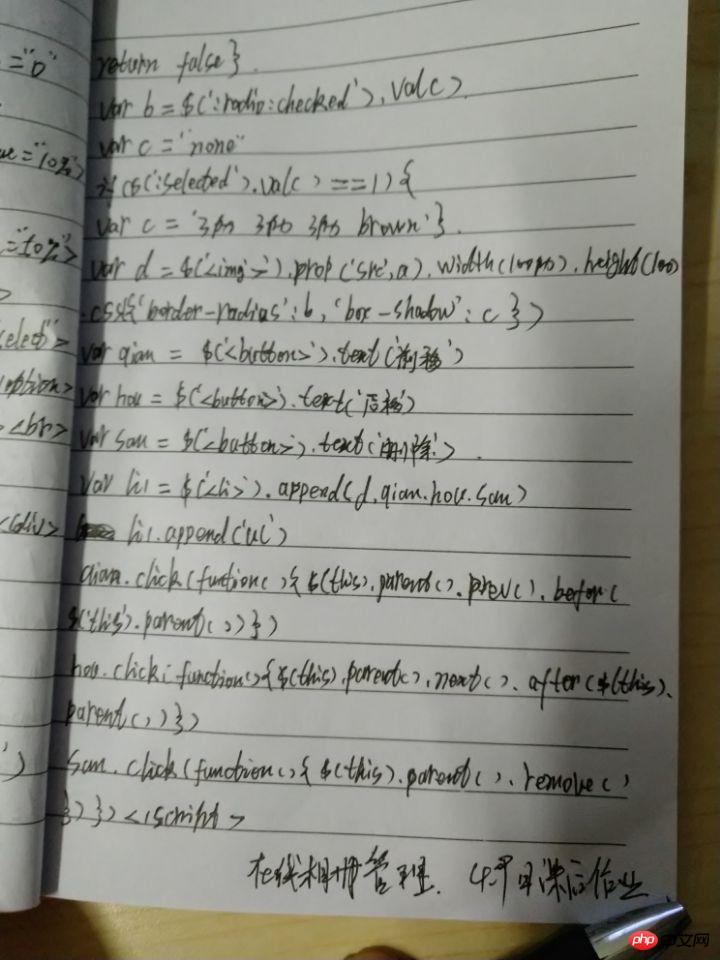 ="0"
ue="10%">
="10%">
>
select>
option>
<br>
<div>
')
return false}.
var b=$(':radio:checked').val()
var c="none"
if($(':selected').val()==1){
var c='3px 3px 3px brown'}.
var d=$('<img>').prop('src',a).width(100px).height(100)
.css({'border-radius':b,'box-shadow':c})
var qian = $('<button>').text('前移')
var hou = $('<button>').text('后移')
var san = $('<button>').text('删除').
var li1 = $('<li>').append(d.qian.hou.san)
li1.append('ul')
qian.click(function(){$(this).parent().prev().before(
$('this').parent())})
hou.click(function(){$(this).parent().next().after($(this).
parent())})
san.click(function(){$(this).parent().remove()
})})</script>
在线相册管理. 课后作业
php中文网